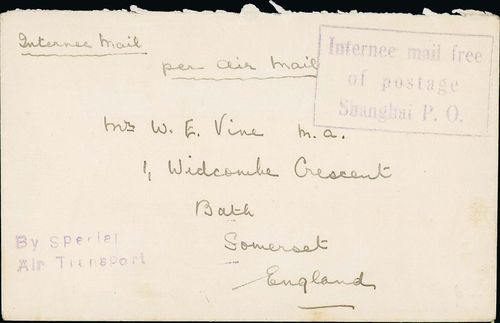 Internee Mail
per Air Mail
Internee mail free
of postage
Shanghai P. O.
Mrs W. E. Vine M.A.
1, Widcombe Crescent
Bath
Somerset
England
By Special
Air Transport